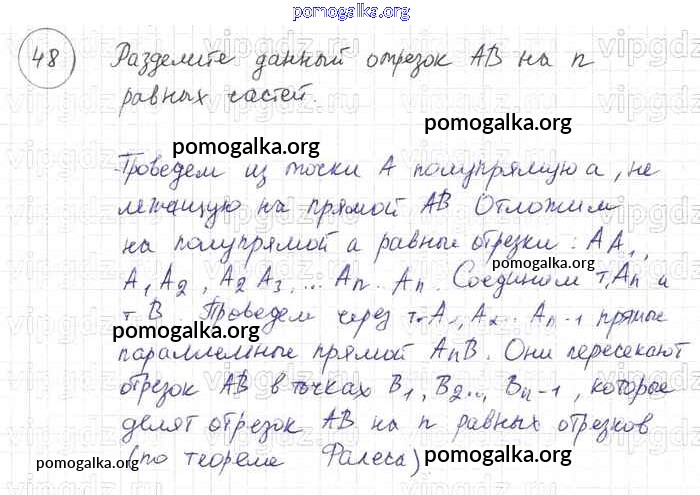 pomogalka.org
48 Разделите данный отрезок AB на n
равных частей.
pomogalka.org
pomogalka.org
Проведем из точки A полупрямую a, не
лежащую на прямой AB Отложим
на полупрямой a равные отрезки: AA1,
pomogalka.org
A1A2, A2A3, ... An- An. Соединим т, An и
т B. Проведем через т. A1, A2... An-1 прямые
pomogalka.org
параллельные прямой AnB. Они пересекают
отрезок AB в точках B1, B2.., Bn-1, которые
делят отрезок AB на n равных отрезков
(по теореме Фалеса)
pomogalka.org
pomogalka.org
vipgdz.ru